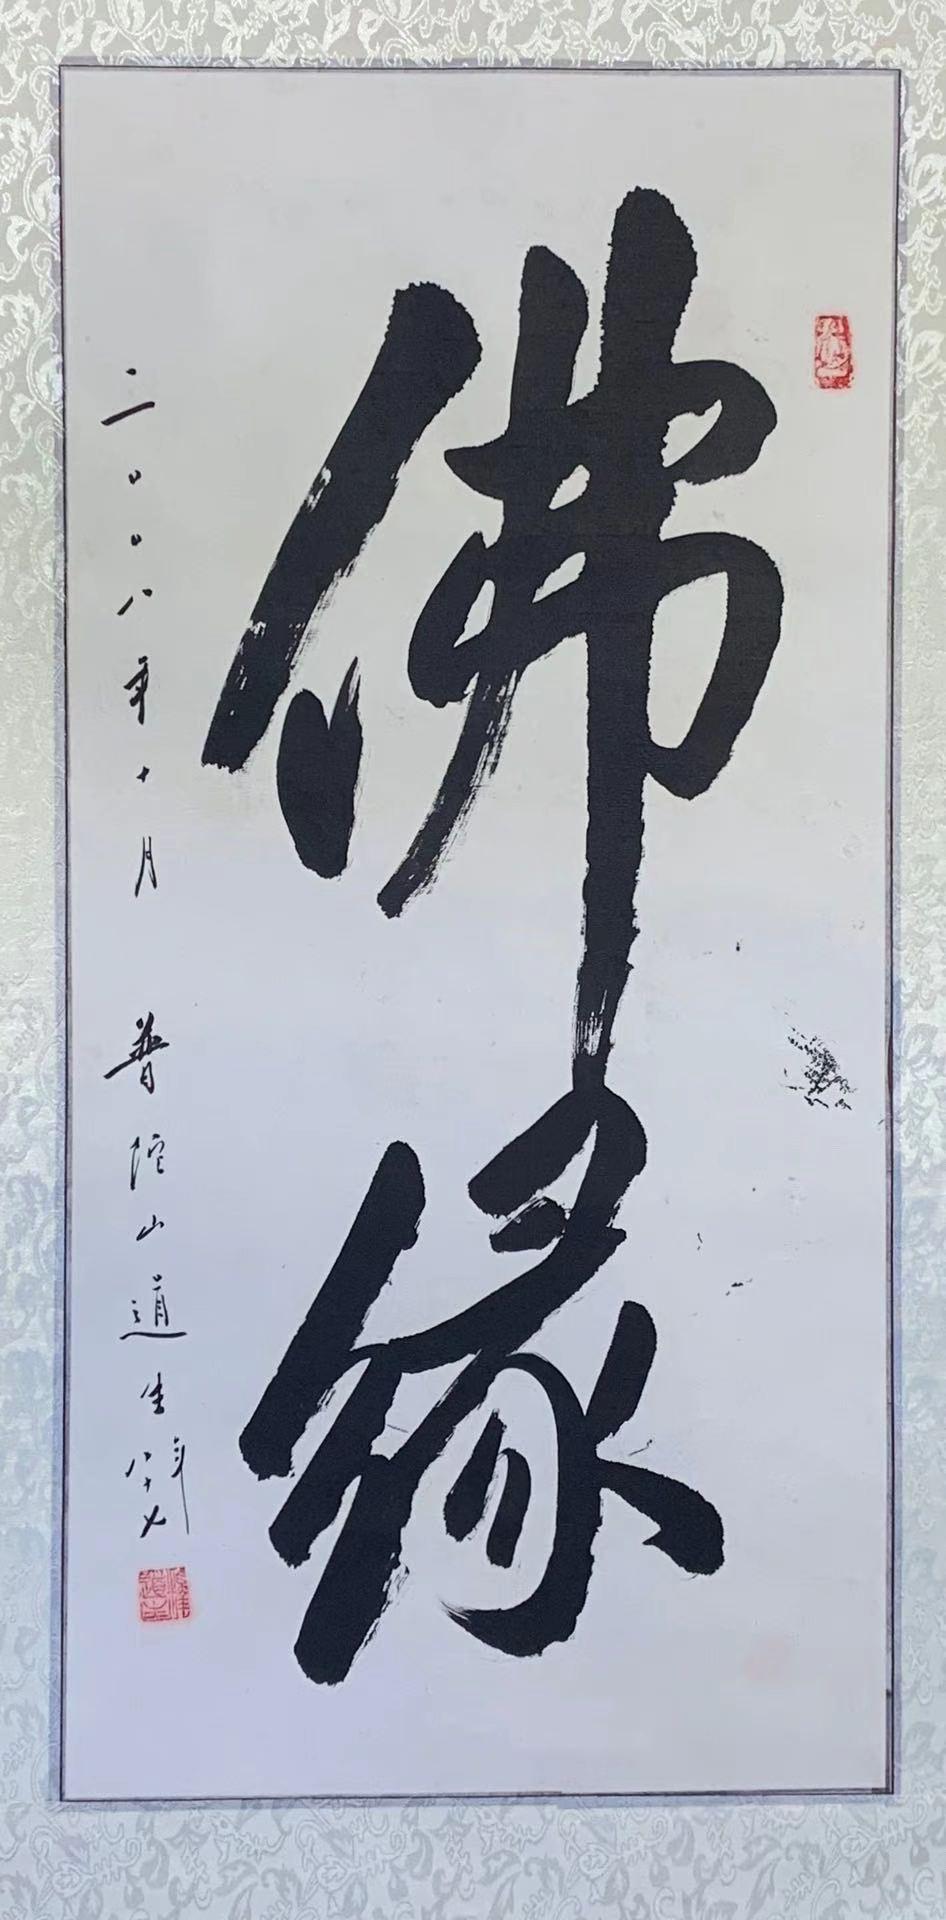 佛缘
二〇〇八年十月 普陀山道生年八十又